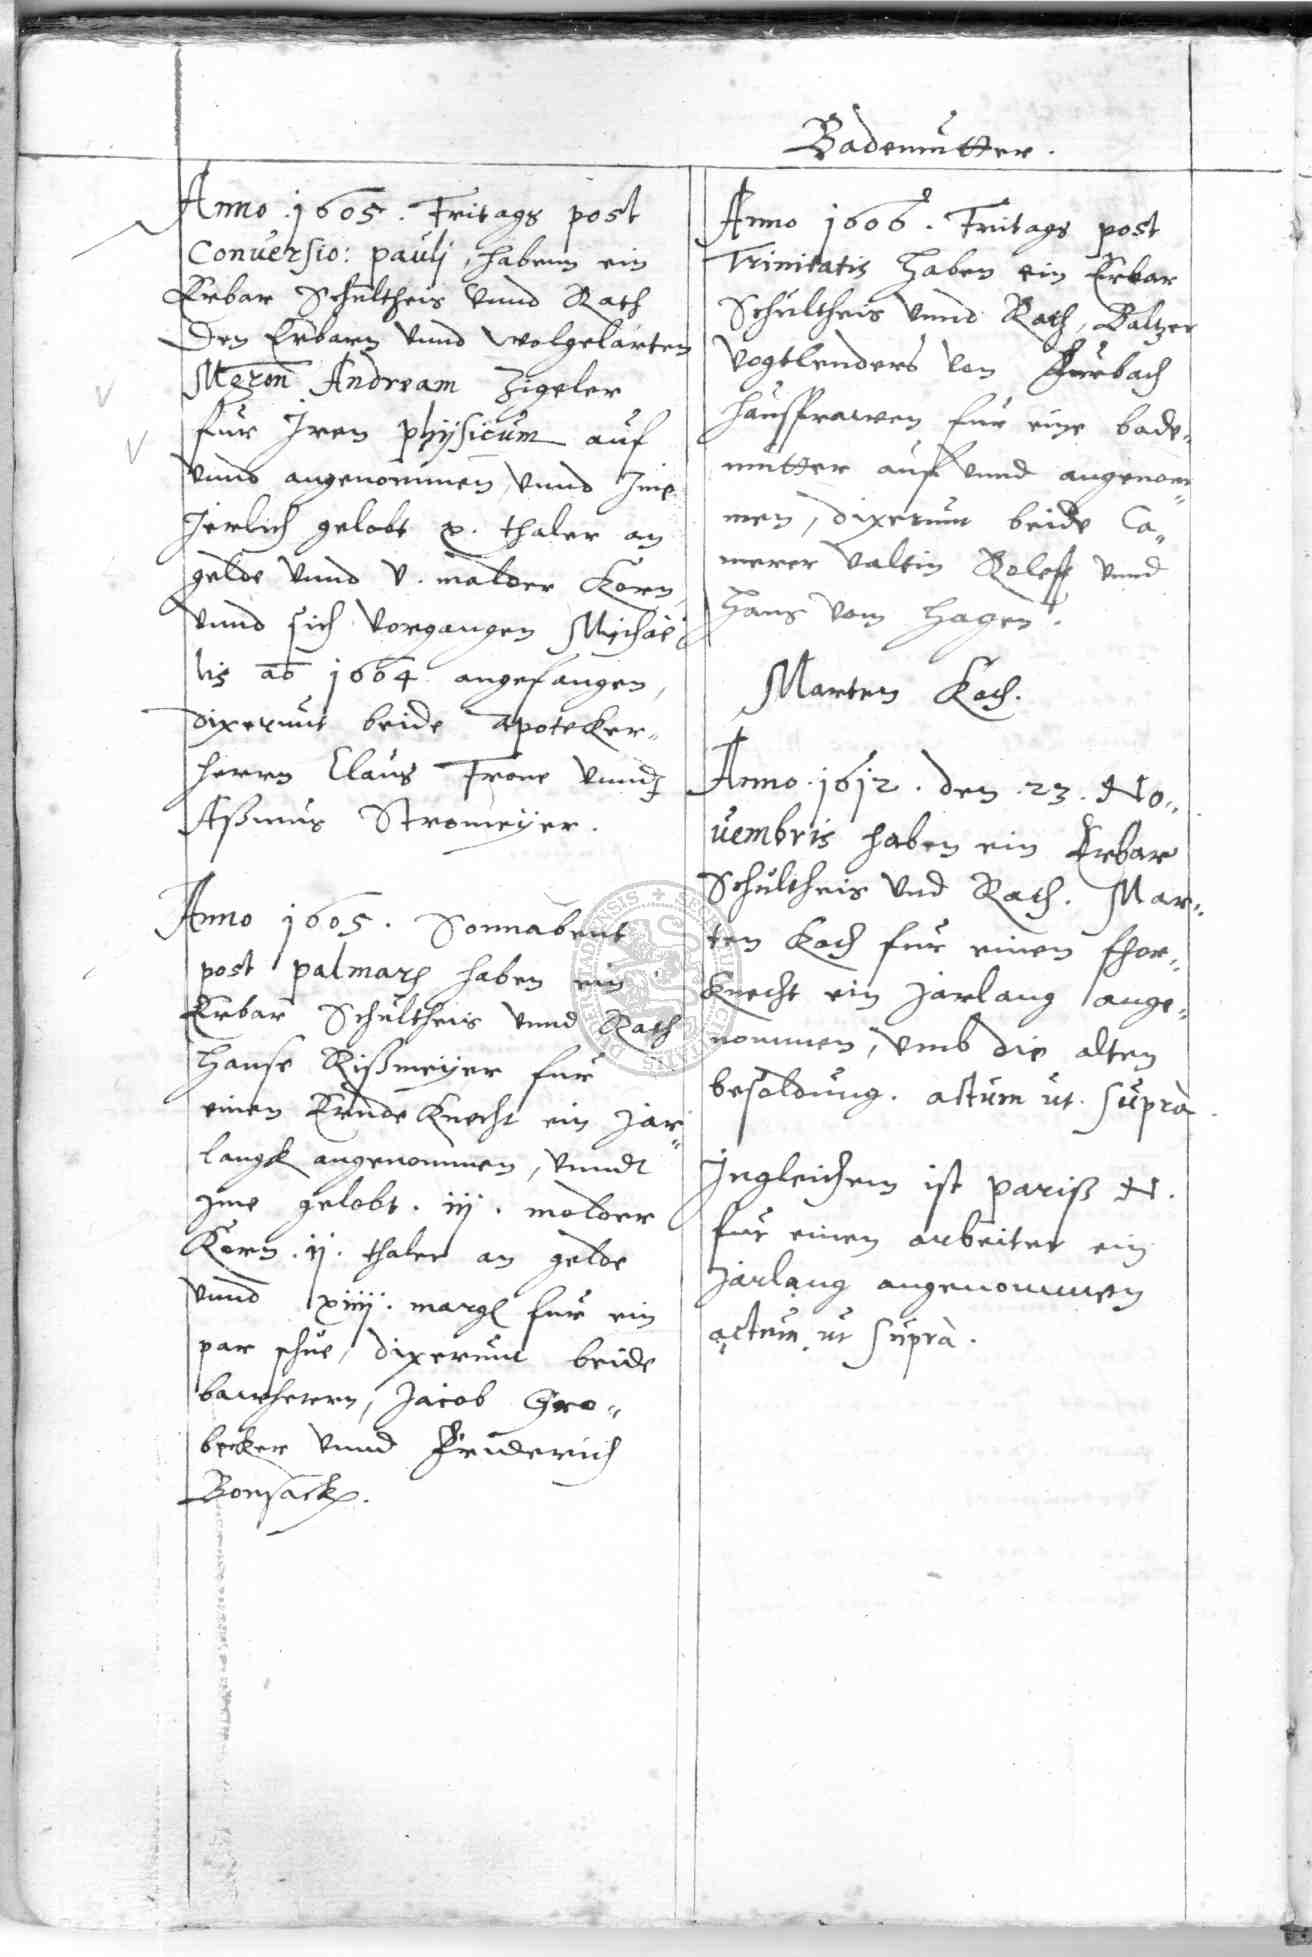 Anno .1605. Fritags post
Conuersio: paulj, habenn ein
Erbar Schultheis vnnd Rath
Den Erbarn vnnd wolgelarten
Andream Zigeler
fur Iren physicum auf
vnnd angenommen, vnnd Ime
Jerlich gelobt x. thaler an
gelde vnnd v. malder Korn,
vnnd sich vorgangen Michae
lis ao 1604 angefangen,
dixerunt beide apotecker-
herrn Claus Trone vnnd
Aßmus Stromeijer.
Anno 1605. Sonnabent
post palmarum haben ein
Erbar Schultheis vnnd Rath
Hanse Rißmeijer fur
einen Ernde Knecht ein Jar-
langk angenommen, vnndt
Ime gelobt .iij. molder
Korn .ij. thaler an gelde
vnnd xiiij. margk fur ein
par schue, dixerunt beide
bawherrn, Jacob Gro-
becker vnnd Friderich
Bonsack.
Bademutter.
Anno 1606. Fritags post
Trinitatis haben ein Erbar
Schultheis vnnd Rath, Baltzer
Vogtlenders von
hausfrawen fur eine bade-
mutter auf vnnd angenom-
men, dixerunt beide Ca-
merer Valtin Roleff vnnd
Hans vom Hagen.
Marten Koch.
Anno .1612. den .23. No-
uembris haben ein Erbar
Schultheis vnd Rath. Mar-
ten Koch fur einen thor-
Knecht ein Jarlang ange-
nommen, vmb die alten
besoldung. actum ut supra.
Ingleichem ist pariß N.
fur einen arbeiter ein
Jarlang angenommen
actum ut supra.